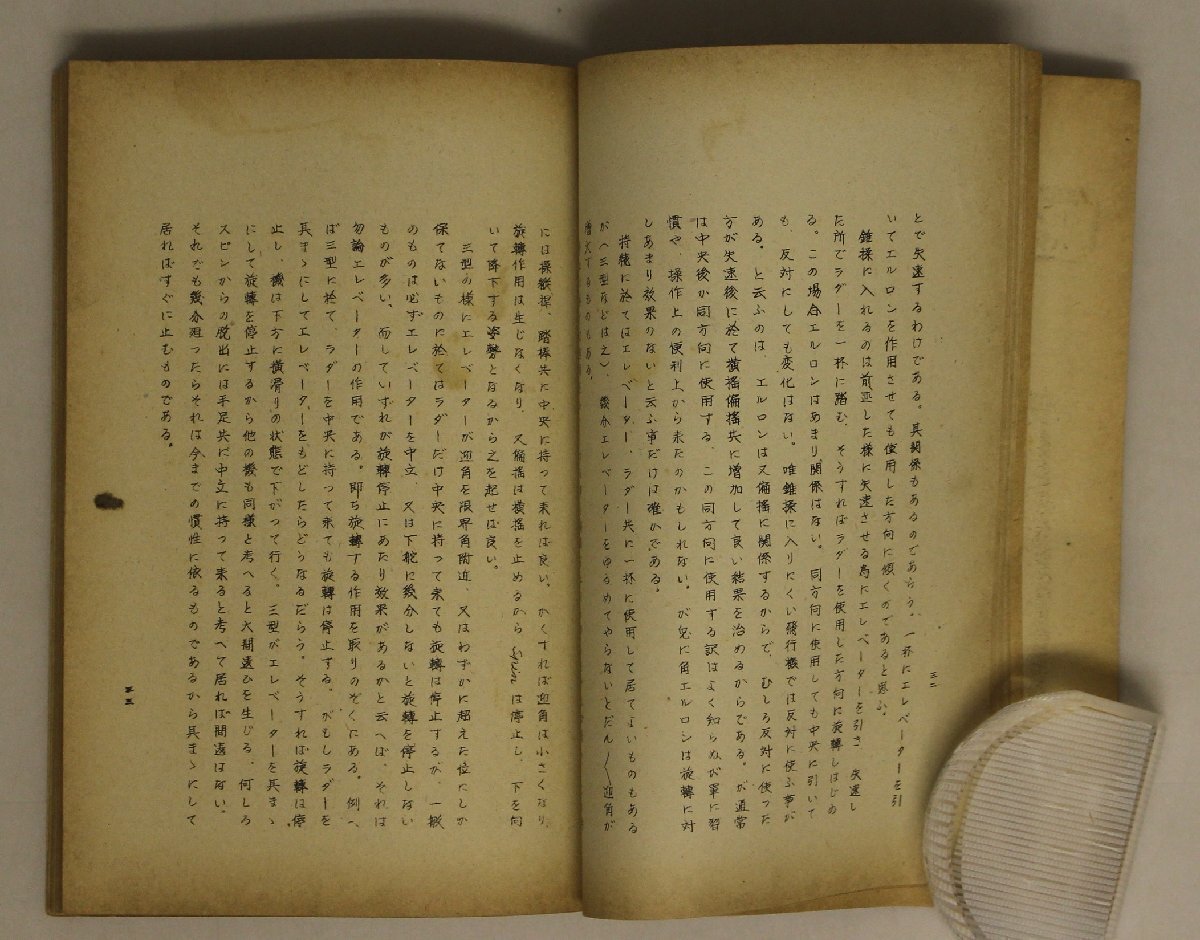 三二
とで失速するわけである。其関係もあるのであらう。一杯にエレベーターを引
いてエルロンを作用させても使用した方向に傾くのであると思ふ。
錐揉に入れるのは前述した様に失速させる為にエレベーターを引き 失速し
た所でラダーを一杯に踏む、そうすればラダーを使用した方向に旋轉しはじめ
る。この場合エルロンはあまり関係はない。同方向に使用しても中央に引いて
も、反対にしても変化はない。唯錐揉に入りにくい飛行機では反対に使ふ事が
ある。と云ふのは、エルロンは又偏揺に関係するからで、むしろ反対に使った
方が失速後に於て横揺偏揺共に増加して良い結果を治めるからである。が通常
は中央後か同方向に使用する、この同方向に使用する訳はよく知らぬが單に習
慣や、操作上の便利上から来たのかもしれない。が兎に角エルロンは旋轉に対
しあまり効果のないと云ふ事だけは確かである。
持続に於てはエレベーター、ラダー共に一杯に使用して居てよいものもある
が（三型などは之）、幾分エレベーターをゆるめてやらないとだん〱迎角が
増大するものもある。
には操縦桿、踏棒共に中央に持って来れば良い。かくすれば迎角は小さくなり、
旋轉作用は生じなくなり、又偏揺は横揺を止めるから Spin は停止し、下を向
いて降下する姿勢となるから之を起せば良い。
三型の様にエレベーターが迎角を限界角附近、又はわずかに超えた位にしか
保てないものに於てはラダーだけ中央に持って来ても旋轉は停止するが、一般
のものは必ずエレベーターを中立、又は下舵に幾分しないと旋轉を停止しない
ものが多い。而していずれが旋轉停止にあたり効果があるかと云へば、それは
勿論エレベーターの作用である。即ち旋轉する作用を取りのぞくにある。例へ
ば三型に於て、ラダーを中央に持って来ても旋轉は停止する。がもしラダーを
其まゝにしてエレベーターをもどしたらどうなるだらう。そうすれば旋轉は停
止し、機は下方に横滑りの状態で下がって行く。三型がエレベーターを其まゝ
にして旋轉を停止するから他の機も同様と考へると大間違ひを生じる、何しろ
スピンからの脱出には手足共に中立に持って来ると考へて居れば間違はない。
それでも幾分廻ったらそれは今までの慣性に依るものであるから其まゝにして
居ればすぐに止むものである。
三三